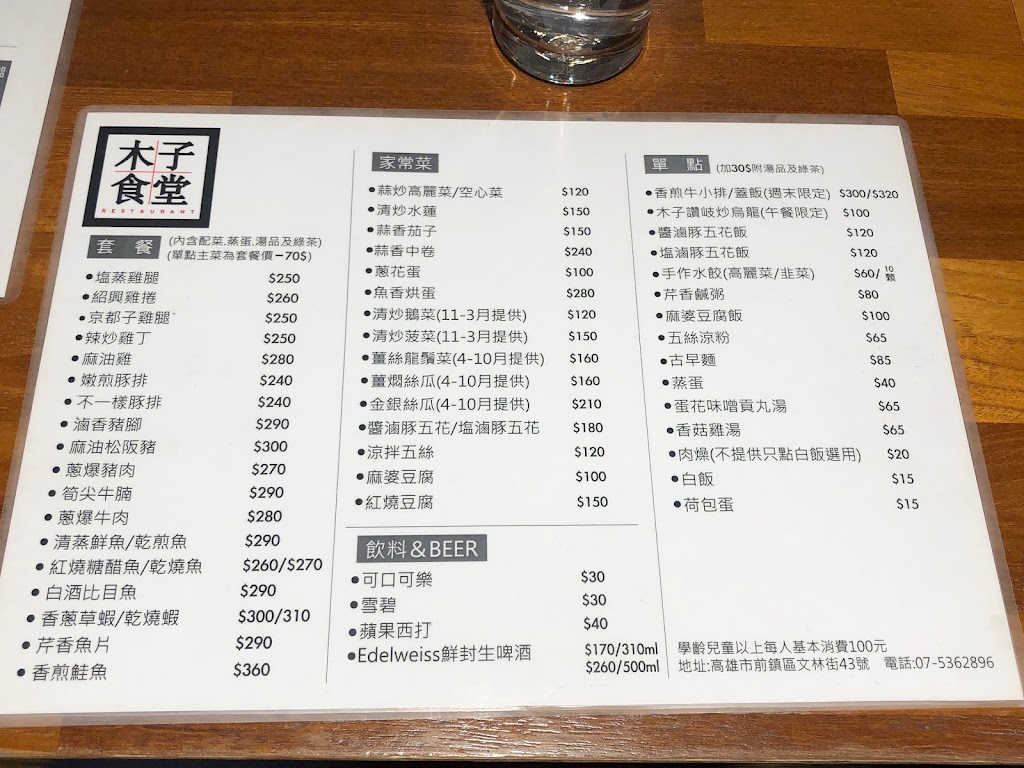 木子
食堂
RESTAURANT
套 餐 (內含配菜.蒸蛋.湯品及綠茶)
(單點主菜為套餐價-70$)
●塩蒸雞腿 $250
●紹興雞捲 $260
●京都子雞腿 $250
●辣炒雞丁 $250
●麻油雞 $280
●嫩煎豚排 $240
●不一樣豚排 $240
●滷香豬腳 $290
●麻油松阪豬 $300
●蔥爆豬肉 $270
●筍尖牛腩 $290
●蔥爆牛肉 $280
●清蒸鮮魚/乾煎魚 $290
●紅燒糖醋魚/乾燒魚 $260/$270
●白酒比目魚 $290
●香蔥草蝦/乾燒蝦 $300/310
●芹香魚片 $290
●香煎鮭魚 $360
家常菜
●蒜炒高麗菜/空心菜 $120
●清炒水蓮 $150
●蒜香茄子 $150
●蒜香中卷 $240
●蔥花蛋 $100
●魚香烘蛋 $280
●清炒鵝菜(11-3月提供) $120
●清炒菠菜(11-3月提供) $150
●薑絲龍鬚菜(4-10月提供) $160
●薑燜絲瓜(4-10月提供) $160
●金銀絲瓜(4-10月提供) $210
●醬滷豚五花/塩滷豚五花 $180
●涼拌五絲 $120
●麻婆豆腐 $100
●紅燒豆腐 $150
飲料&BEER
●可口可樂 $30
●雪碧 $30
●蘋果西打 $40
●Edelweiss鮮封生啤酒 $170/310ml
$260/500ml
單 點 (加30$附湯品及綠茶)
●香煎牛小排/蓋飯(週末限定) $300/$320
●木子讚岐炒烏龍(午餐限定) $100
●醬滷豚五花飯 $120
●塩滷豚五花飯 $120
●手作水餃(高麗菜/韭菜) $60/10顆
●芹香鹹粥 $80
●麻婆豆腐飯 $100
●五絲涼粉 $65
●古早麵 $85
●蒸蛋 $40
●蛋花味噌貢丸湯 $65
●香菇雞湯 $65
●肉燥(不提供只點白飯選用) $20
●白飯 $15
●荷包蛋 $15
學齡兒童以上每人基本消費100元
地址:高雄市前鎮區文林街43號 電話:07-5362896